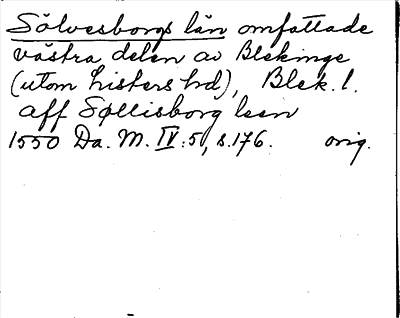 Sölvesborgs län omfattade
västra delen av Blekinge
(utom Listers hd), Blek. l.
aff Søllisborg leen
1550 Da. M. IV:5, s. 176. orig.